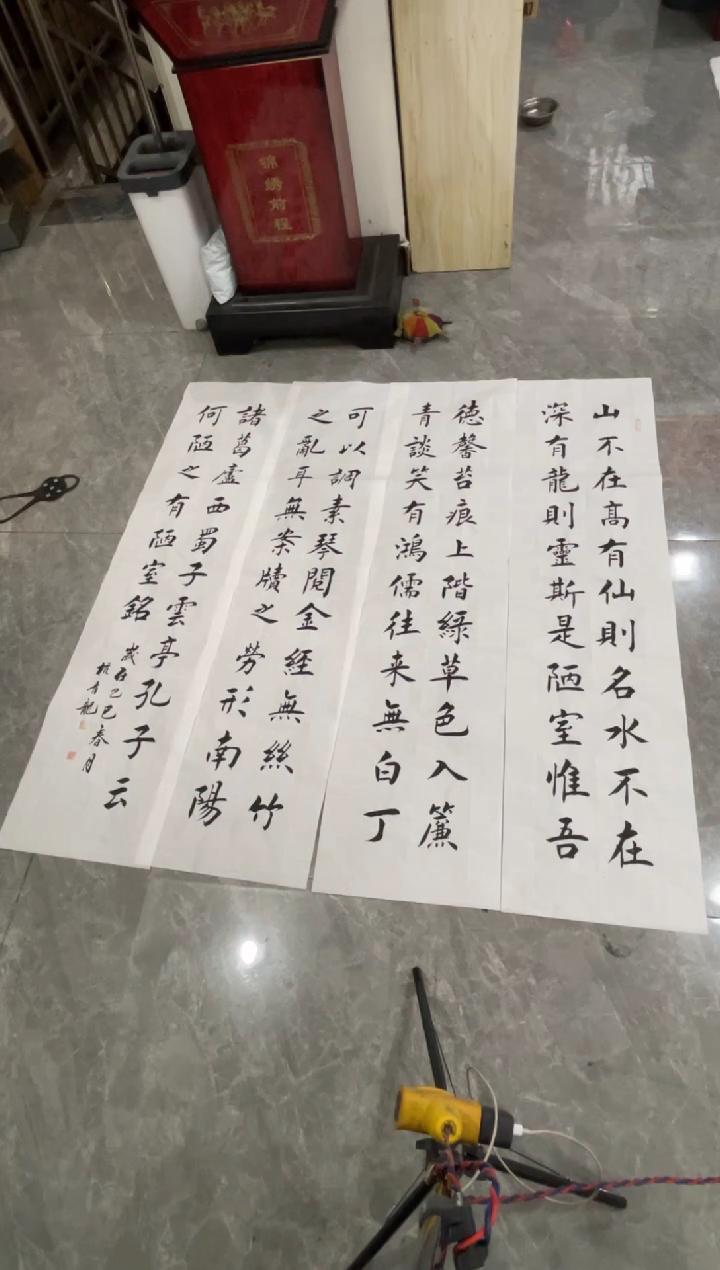 锦绣前程
山不在高有仙則名水不在
深有龍則靈斯是陋室惟吾
德馨苔痕上階緑草色入簾
青談笑有鴻儒往来無白丁
可以調素琴閲金經無絲竹
之亂耳無案牘之勞形南陽
諸葛虛西蜀子雲亭孔子云
何陋之有陋室銘
歲在乙巳春月